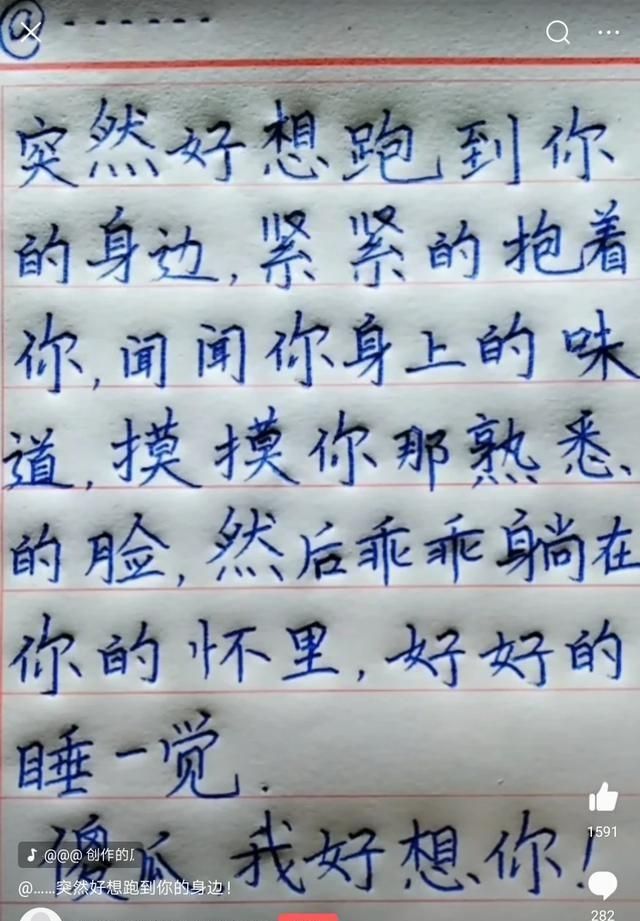 @.......
突然好想跑到你
的身边,紧紧的抱着
你,闻闻你身上的味
道,摸摸你那熟悉
的脸,然后乖乖躺在
你的怀里,好好的
睡一觉.
傻瓜 我好想你!
1591
@@@ 创作的
@......突然好想跑到你的身边!
282